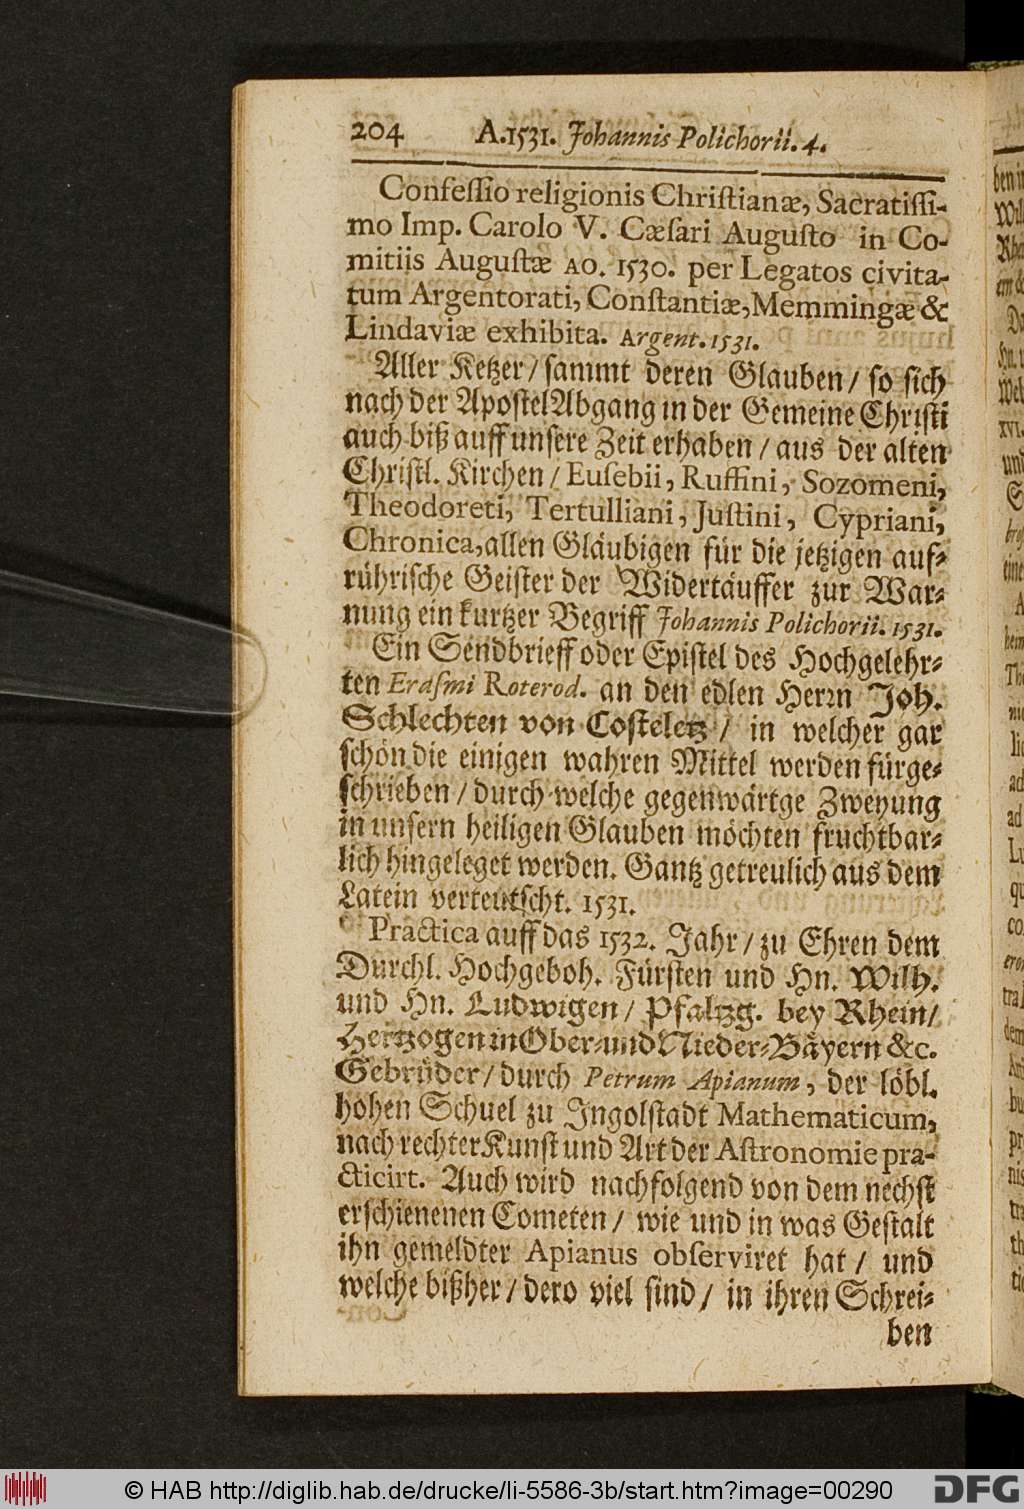 204 A.1531. Johannis Polichorii. 4.
Confessio religionis Christianæ, Sacratissi-
mo Imp. Carolo V. Cæsari Augusto in Co-
mitiis Augustæ AO. 1530. per Legatos civita-
tum Argentorati, Constantiæ, Memmingæ &
Lindaviæ exhibita. Argent. 1531.
Aller Ketzer / sammt deren Glauben / so sich
nach der Apostel Abgang in der Gemeine Christi
auch biß auff unsere Zeit erhaben / aus der alten
Christl. Kirchen / Eusebii, Ruffini, Sozomeni,
Theodoreti, Tertulliani, Justini, Cypriani,
Chronica, allen Gläubigen für die jetzigen auf-
rührische Geister der Widertäuffer zur War-
nung ein kurtzer Begriff Johannis Polichorii. 1531.
Ein Sendbrieff oder Epistel des Hochgelehr-
ten Erasmi Roterod. an den edlen Herrn Joh.
Schlechten von Costeletz / in welcher gar
schön die einigen wahren Mittel werden fürge-
schrieben / durch welche gegenwärtge Zweyung
in unsern heiligen Glauben möchten fruchtbar-
lich hingeleget werden. Gantz getreulich aus dem
Latein verteutscht. 1531.
Practica auff das 1532. Jahr / zu Ehren dem
Durchl. Hochgeboh. Fürsten und Hn. Wilh.
und Hn. Ludwigen / Pfaltzg. bey Rhein /
Hertzogen in Ober- und Nieder-Bäyern &c.
Gebrüder / durch Petrum Apianum, der löbl.
hohen Schuel zu Ingolstadt Mathematicum,
nach rechter Kunst und Art der Astronomie pra-
cticirt. Auch wird nachfolgend von dem nechst
erschienenen Cometen / wie und in was Gestalt
ihn gemeldter Apianus observiret hat / und
welche bißher / dero viel sind / in ihren Schrei-
ben
© HAB http://diglib.hab.de/drucke/li-5586-3b/start.htm?image=00290
DFG